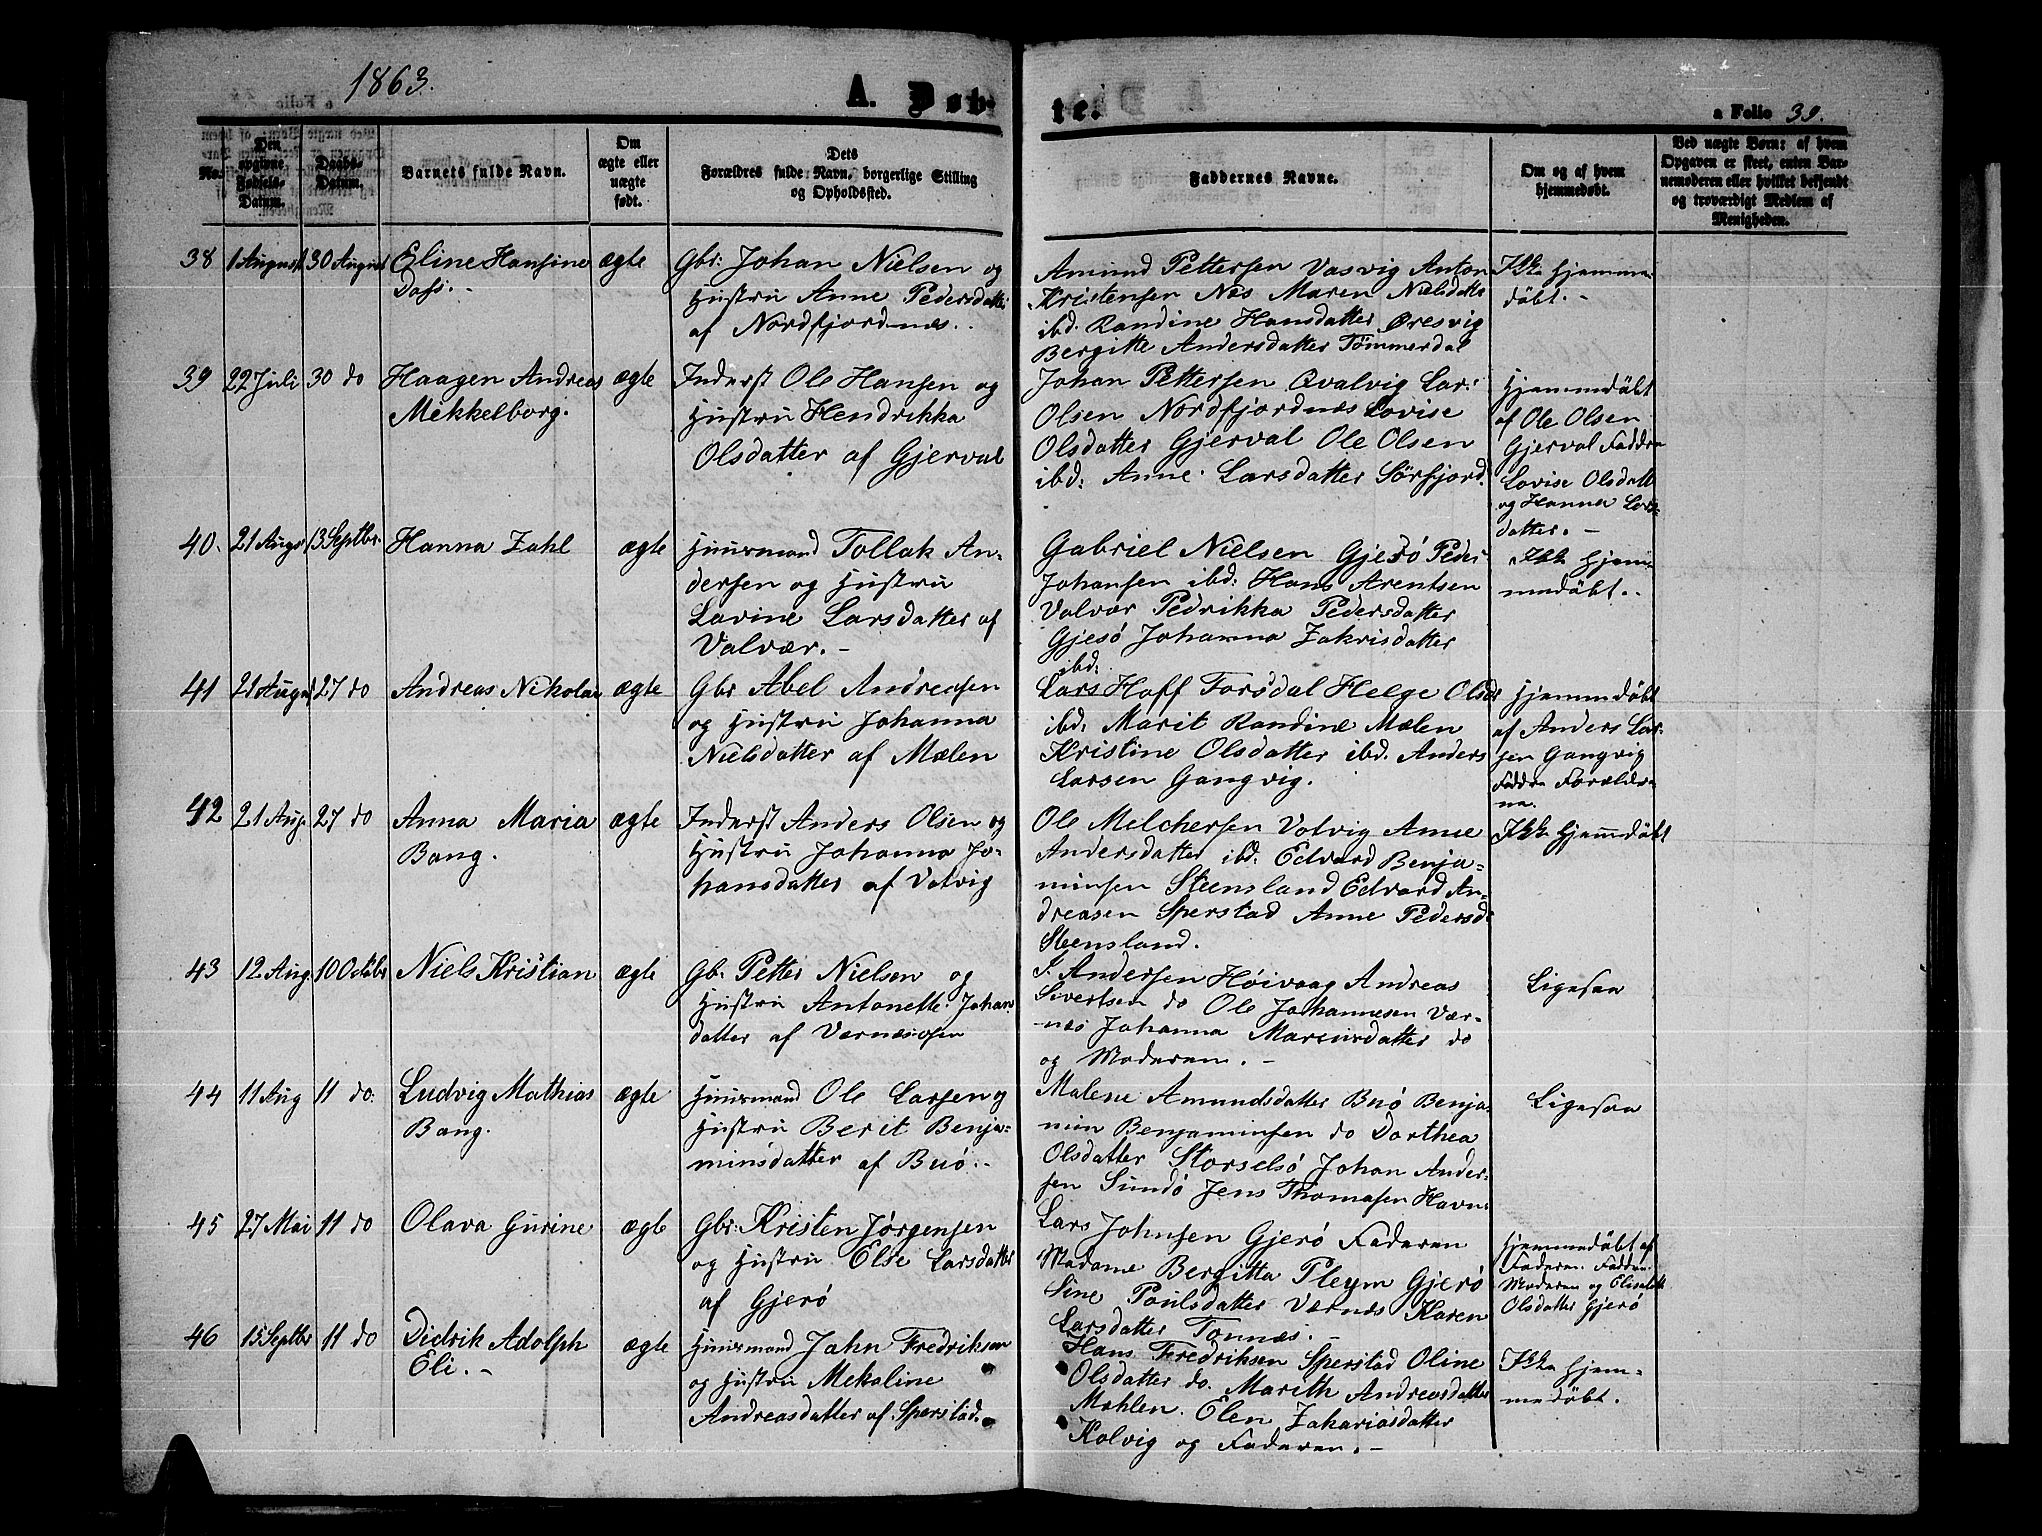 1863.
A. Døb-
te.
a Folio 39.
No.
Den
opgivne
Fødsels-
Datum.
Daabs-
Datum.
Barnets fulde Navn.
Om
ægte eller
uægte
født.
Dets
Forældres fulde Navn, borgerlige Stilling
og Opholdssted.
Faddernes Navne.
Om og af hvem
hjemmedøbt.
Ved uægte Børn: af hvem
Opgaven er skeet, enten Bar-
nemoderen eller hvilket bekjendt
og troværdigt Medlem af
Menigheden.
38 1 August 30 August Eline Hansine ægte Gbr: Johan Nielsen og
Dass.-
Hustru Anne Pedersdatter
af Nordfjordnæs..
Amund Pettersen Vasvig Anton
Kristensen Næs Maren Nielsdatter
ibd. Randine Hansdatter Øresvig
Bergitte Andersdatter Tømmerdal
Ikke hjemme-
døbt.-
39 22 Juli 30 do Haagen Andreas ægte Inderst Ole Hansen og
Mikkelborg.
Hustru Hendrikka
Olsdatter af Gjerval
Johan Pettersen Qvalvig Lars
Olsen Nordfjordnæs Lovise
Olsdatter Gjerval Ole Olsen
ibd: Anne Larsdatter Sörfjord.
Hjemmdöbt
af Ole Olsen
Gjerval Faddre
Lovise Olsdatt
og Hanna Lars-
datter.-
40. 21 Augs 13 Septbr. Hanna Zahl ægte Huusmand Tollak An-
dersen og Hustru
Lavine Larsdatter af
Valvær.-
Gabriel Nielsen Gjesö Peder
Johansen ibd: Hans Arentsen
Valvær Pedrikka Pedersdatter
Gjesö Johanna Zakrisdatter
ibd:
Ikke hjem-
medöbt..
41 21 August 27 do Andreas Nikolai ægte Gbr Abel Andreasen
og Hustru Johanna
Nielsdatter af Mælen
Lars Hoff Forsdal Helge Olsdr
ibd: Marit Randine Mælen
Kristine Olsdatter ibd. Anders
Larsen Gangvig.
Hjemmdöbt
af Anders Lar-
sen Gangvig
Faddre Forældre-
ne.
42 21 Aug. 27 do Anna Maria ægte Inderst Anders Olsen og
Bang.
Hustru Johanna Jo-
hansdatter af Valvig
Ole Melchersen Valvig Anne
Andersdatter ibd: Edvard Benja-
minsen Steensland Edvard An-
dreasen Sperstad Anne Pedersd:
Steensland.
Ikke hjemmdöbt
43 12 Aug 10 Octobr Niels Kristian ægte Gbr Petter Nielsen og
Hustru Antonette Johan
datter af Værnæsosen
J. Andersen Höivaag Andreas
Sivertsen do Ole Johannesen Vær-
næs Johanna Marcusdatter do
og Moderen.-
Ligesaa
44 11 Aug 11 do. Ludvig Mathias ægte Huusmand Ole Larsen og
Bang.
Hustru Berit Benja-
minsdatter af Buö.-
Malene Amundsdatter Buö Benja-
min Benjaminsen do Dorthea
Olsdatter Storselsö Johan Ander-
sen Sundö Jens Thomasen Havn.
Ligesaa
45 27 Mai 11 do Olava Gurine ægte Gbr: Kristen Jørgensen
og Hustru Else Larsdatter
af Gjerö
Lars Johnsen Gjerö Faderen
Madame Bergitta Pleym Gjerö
Sine Poulsdatter Værnæs Karen
Larsdatter Tonnæs.-
Hjemmedöbt af
Faderen Faddre
Moderen og Elisabeth
Olsdatter Gjerö
46 15 Septbr 11 do Didrik Adolph ægte Huusmand Jahn Fredriksen
Eli.-
og Hustru Mekaline
Andreasdatter af Sperstad.
Hans Fredriksen Sperstad Oline
Olsdatter do. Marith Andreasdatter
Mahlen. Elen Zakariasdatter
Kalvig og Faderen.-
Ikke hjem-
medöbt.